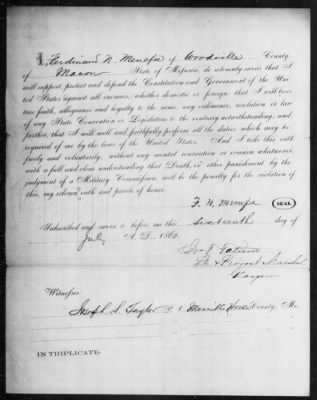 I, Ferdinand N. Menefee of Woodville County
of Macon State of Missouri, do solemnly swear that I
will support protect and defend the Constitution and Government of the Uni-
ted States against all enemies, whether domestic or foreign, that I will bear
true faith, allegiance and loyalty to the same, any ordinance, resolution or law
of any State Convention or Legislature to the contrary notwithstanding; and
further, that I will well and faithfully perform all the duties which may be
required of me by the laws of the United States. And I take this oath
freely and voluntarily, without any mental reservation or evasion whatsoever,
with a full and clear understanding that Death, or other punishment by the
judgment of a Military Commission, will be the penalty for the violation of
this, my solemn oath and parole of honor.
F. N. Menefee SEAL
Subscribed and sworn to before me this Sixteenth day of
July A. D. 1862
Provost Marshal
Macon
Witness:
Joseph S. Taylor County, Mo.
IN TRIPLICATE.